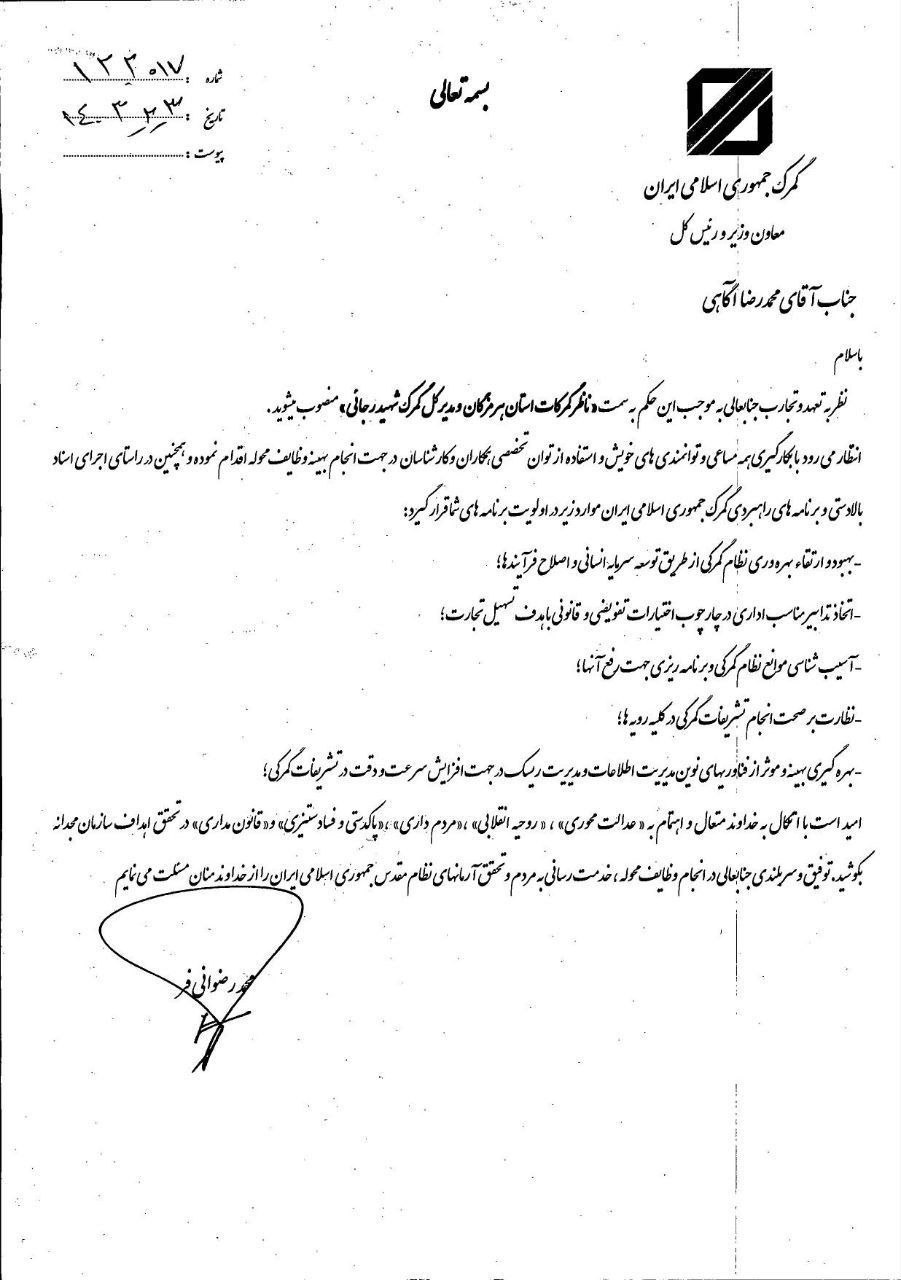 بسمه تعالی
شماره : ۱۲۲۰۱۷
تاریخ : ۱۴۰۳٫۲٫۲۳
پیوست :
گمرک جمهوری اسلامی ایران
معاون وزیر و رئیس کل
جناب آقای محمدرضا آگاهی
باسلام
نظر به تعهد و تجارب جنابعالی به موجب این حکم به سمت «ناظر گمرکات استان هرمزگان و مدیرکل گمرک شهید رجائی» منصوب میشوید.
انتظار می رود با بکارگیری همه مساعی و توانمندی های خویش و استفاده از توان تخصصی همکاران و کارشناسان در جهت انجام بهینه وظایف محوله اقدام نموده و همچنین در راستای اجرای اسناد
بالادستی و برنامه های راهبردی گمرک جمهوری اسلامی ایران موارد زیر در اولویت برنامه های شما قرار گیرد:
-بهبود و ارتقاء بهره وری نظام گمرکی از طریق توسعه سرمایه انسانی و اصلاح فرآیندها؛
-اتخاذ تدابیر مناسب اداری در چارچوب اختیارات تفویضی و قانونی با هدف تسهیل تجارت؛
-آسیب شناسی موانع نظام گمرکی و برنامه ریزی جهت رفع آنها؛
-نظارت بر صحت انجام تشریفات گمرکی در کلیه رویه ها؛
-بهره گیری بهینه و موثر از فناوریهای نوین مدیریت اطلاعات و مدیریت ریسک در جهت افزایش سرعت و دقت در تشریفات گمرکی؛
امید است با اتکال به خداوند متعال و اهتمام به «عدالت محوری» ، «روحیه انقلابی» ، «مردم داری» ، «پاکدستی و فسادستیزی» و «قانون مداری» در تحقق اهداف سازمان مجدانه
بکوشید. توفیق و سربلندی جنابعالی در انجام وظایف محوله ، خدمت رسانی به مردم و تحقق آرمانهای نظام مقدس جمهوری اسلامی ایران را از خداوند منان مسئلت می نمایم
محمد رضوانی فر